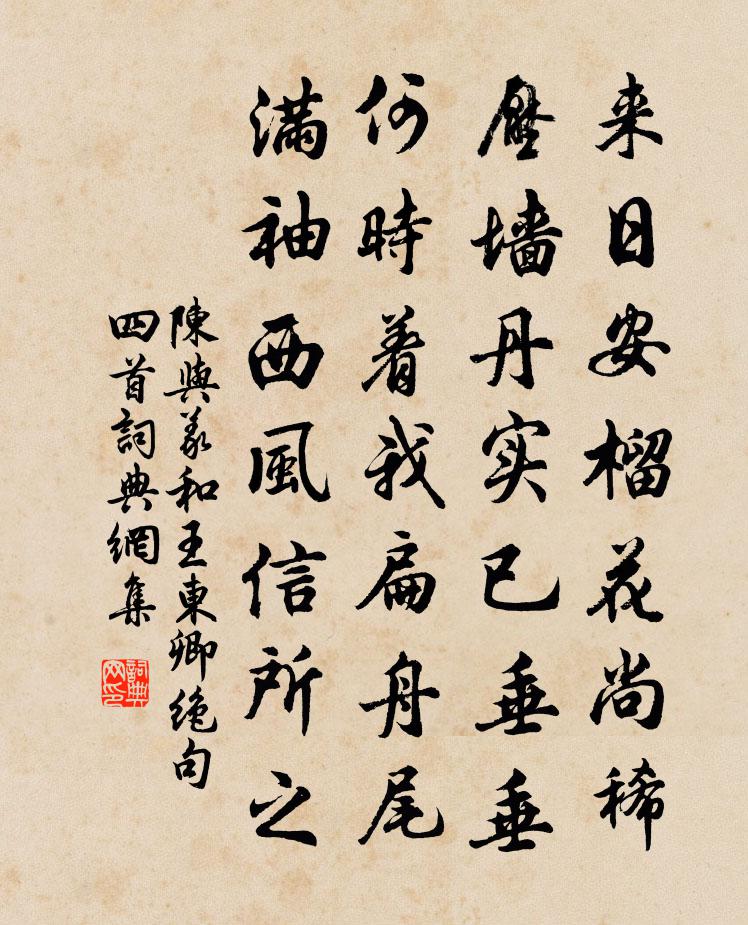 来日安榴花尚稀
壓墙丹实已垂垂
何時着我扁舟尾
满袖西風信所之
陳與義和王東卿绝句
四首詞典網集
詞典网印